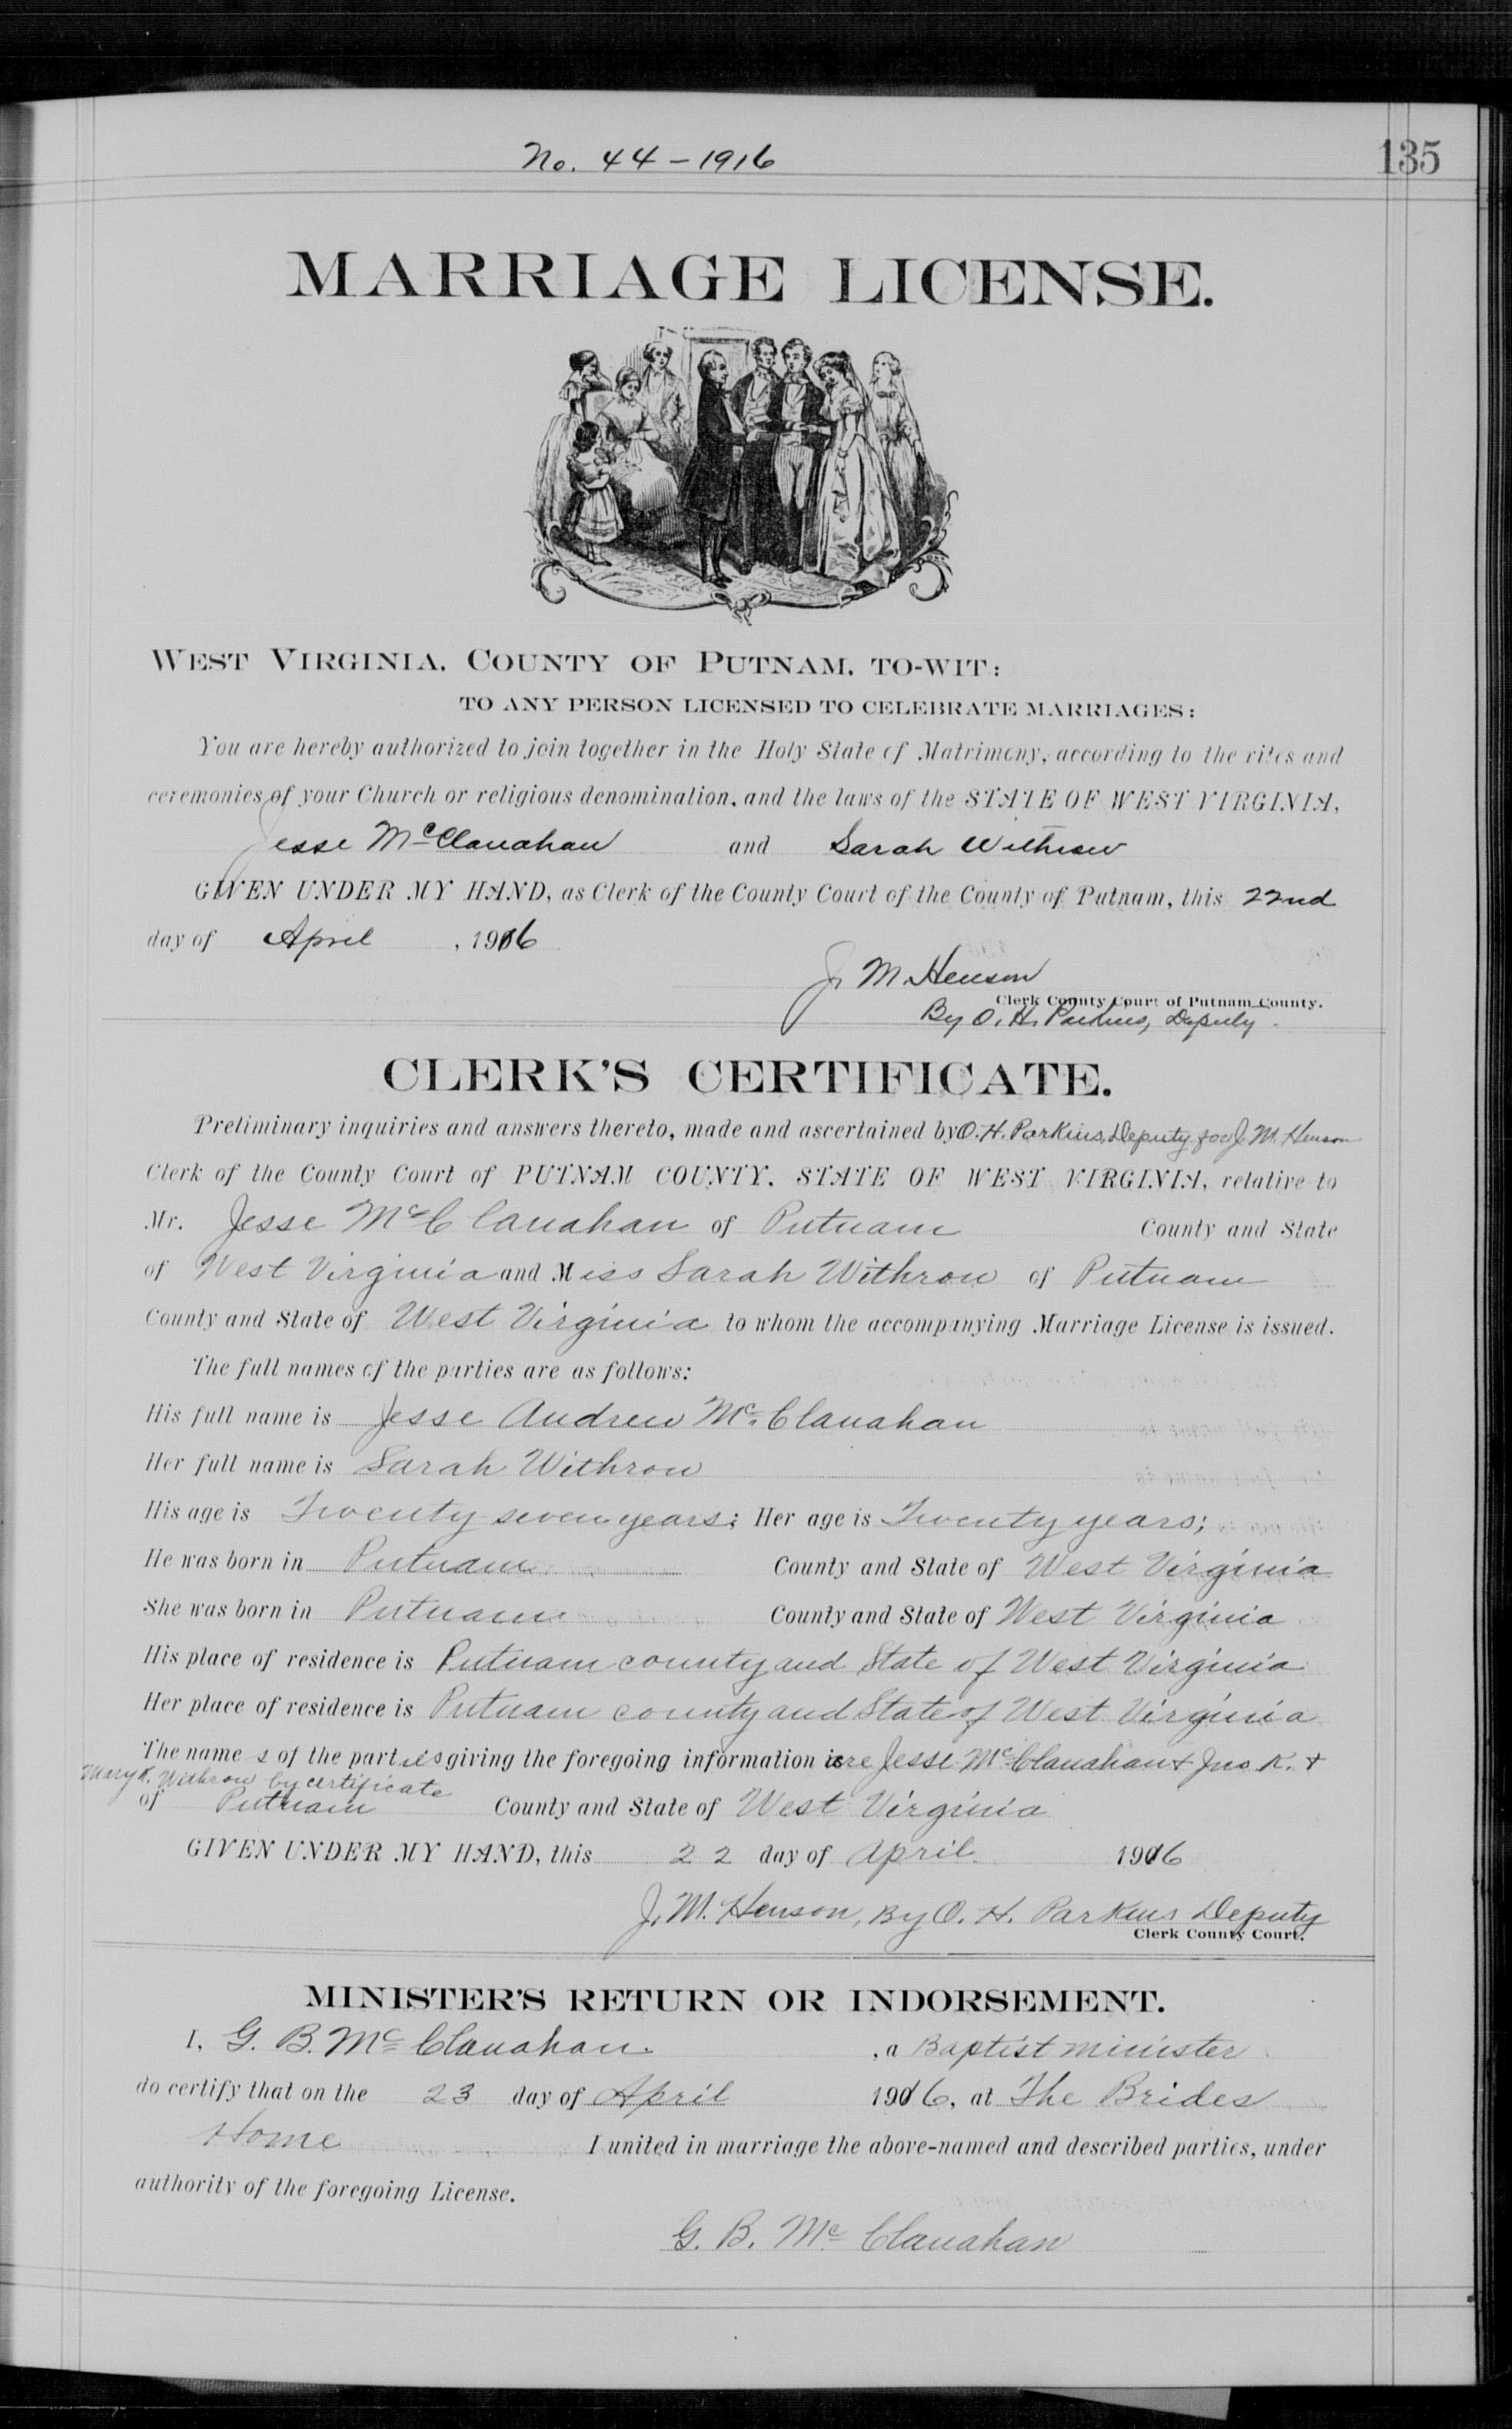 No. 44 - 1916
135
MARRIAGE LICENSE.
WEST VIRGINIA, COUNTY OF PUTNAM, TO-WIT:
TO ANY PERSON LICENSED TO CELEBRATE MARRIAGES:
You are hereby authorized to join together in the Holy State of Matrimony, according to the rites and
ceremonies of your Church or religious denomination, and the laws of the STATE OF WEST VIRGINIA,
Jesse McClanahan and Sarah Withrow
GIVEN UNDER MY HAND, as Clerk of the County Court of the County of Putnam, this 22nd
day of April, 1916
J. M. Henson
Clerk County Court of Putnam County.
By O. H. Parkins, Deputy.
CLERK'S CERTIFICATE.
Preliminary inquiries and answers thereto, made and ascertained by O. H. Parkins, Deputy for J. M. Henson
Clerk of the County Court of PUTNAM COUNTY, STATE OF WEST VIRGINIA, relative to
Mr. Jesse McClanahan of Putnam County and State
of West Virginia and Miss Sarah Withrow of Putnam
County and State of West Virginia to whom the accompanying Marriage License is issued.
The full names of the parties are as follows:
His full name is Jesse Andrew Mc.Clanahan
Her full name is Sarah Withrow
His age is Twenty seven years; Her age is Twenty years;
He was born in Putnam County and State of West Virginia
She was born in Putnam County and State of West Virginia
His place of residence is Putnam county and State of West Virginia
Her place of residence is Putnam county and State of West Virginia
The names of the parties giving the foregoing information are Jesse McClanahan + Jno. K. +
Mary K. Withrow by certificate
of Putnam County and State of West Virginia
GIVEN UNDER MY HAND, this 22 day of April 1916
J. M. Henson, By O. H. Parkins Deputy
Clerk County Court.
MINISTER'S RETURN OR INDORSEMENT.
I, G. B. McClanahan. , a Baptist minister
do certify that on the 23 day of April 1916, at The Brides
Home I united in marriage the above-named and described parties, under
authority of the foregoing License.
G. B. McClanahan